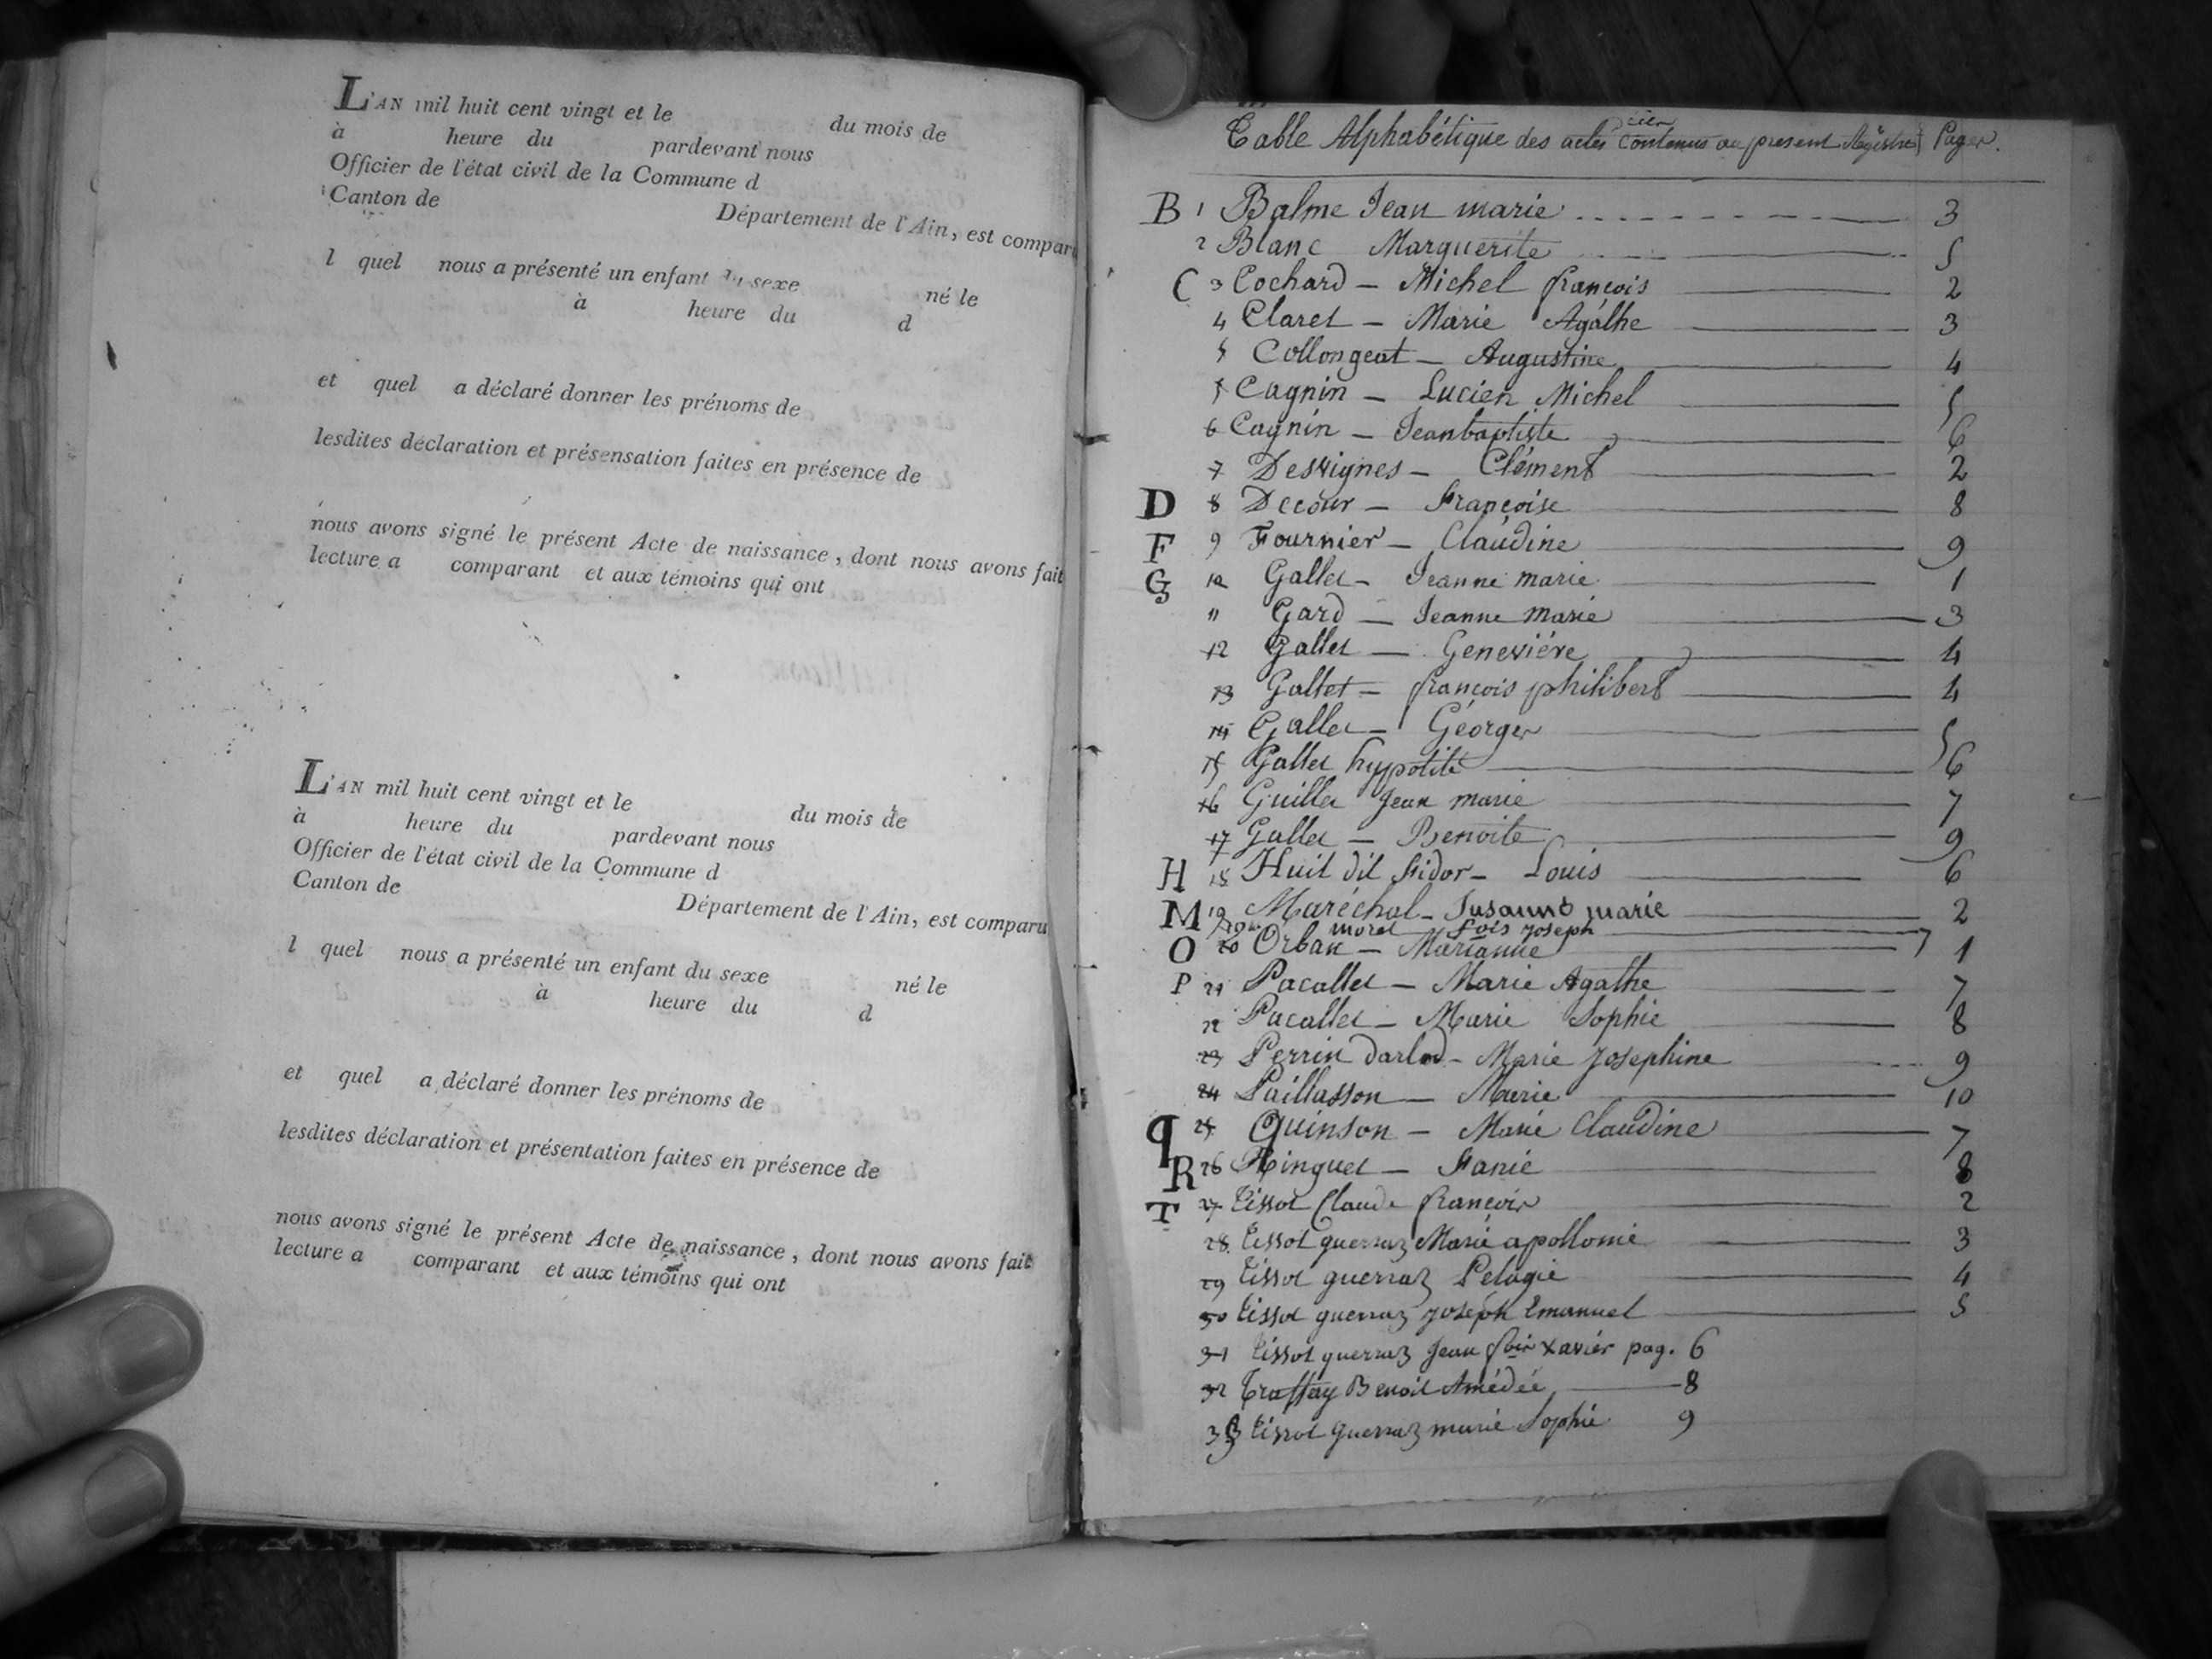 L'AN mil huit cent vingt et le du mois de
à heure du pardevant nous
Officier de l'état civil de la Commune d
Canton de Département de l'Ain, est comparu
l quel nous a présenté un enfant du sexe né le
à heure du d
et quel a déclaré donner les prénoms de
lesdites déclaration et présensation faites en présence de
nous avons signé le présent Acte de naissance, dont nous avons fait
lecture a comparant et aux témoins qui ont
L'AN mil huit cent vingt et le du mois de
à heure du pardevant nous
Officier de l'état civil de la Commune d
Canton de Département de l'Ain, est comparu
l quel nous a présenté un enfant du sexe né le
à heure du d
et quel a déclaré donner les prénoms de
lesdites déclaration et présentation faites en présence de
nous avons signé le présent Acte de naissance, dont nous avons fait
lecture a comparant et aux témoins qui ont
Table Alphabétique des actes contenus au present Registre Pages.
B 1 Balme Jean marie 3
2 Blanc Marguerite 5
C 3 Cochard - Michel françois 2
4 Claret - Marie Agáthe 3
5 Collongeat - Augustine 4
5 Cagnin - Lucien Michel 5
6 Cagnin - Jeanbaptiste 6
7 Desvignes - Clément 2
D 8 Decour - françoise 8
F 9 Fournier - Claudine 9
G 10 Gallet - Jeanne marie 1
11 Gard - Jeanne marie 3
12 Gallet - Geneviéve 4
13 Gallet - françois philibert 4
14 Gallet - Géorges 5
15 Gallet hypolite 6
16 Guillet Jean marie 7
17 Gallet - Benoite 9
H 18 Huit dit fidor - Louis 6
M 19 Maréchal - Susanne marie 2
19bis morel fois joseph 7
O 20 Orban - Marianne 1
P 21 Pacallet - Marie Agathe 7
22 Pacallet - Marie Sophie 8
23 Perrin darlod - Marie josephine 9
24 Paillasson - Marie 10
q 25 Quinson - Marie Claudine 7
R 26 Ringuet - Fanie 8
T 27 Tissot Claude françois 2
28 Tissot guerraz Marie apollonie 3
29 Tissot guerraz Pelagie 4
30 Tissot guerraz joseph Emanuel 5
31 Tissot guerraz Jean fois xavier pag. 6
32 Traffay Benoit Amédée 8
33 Tissot guerraz marie Sophie 9